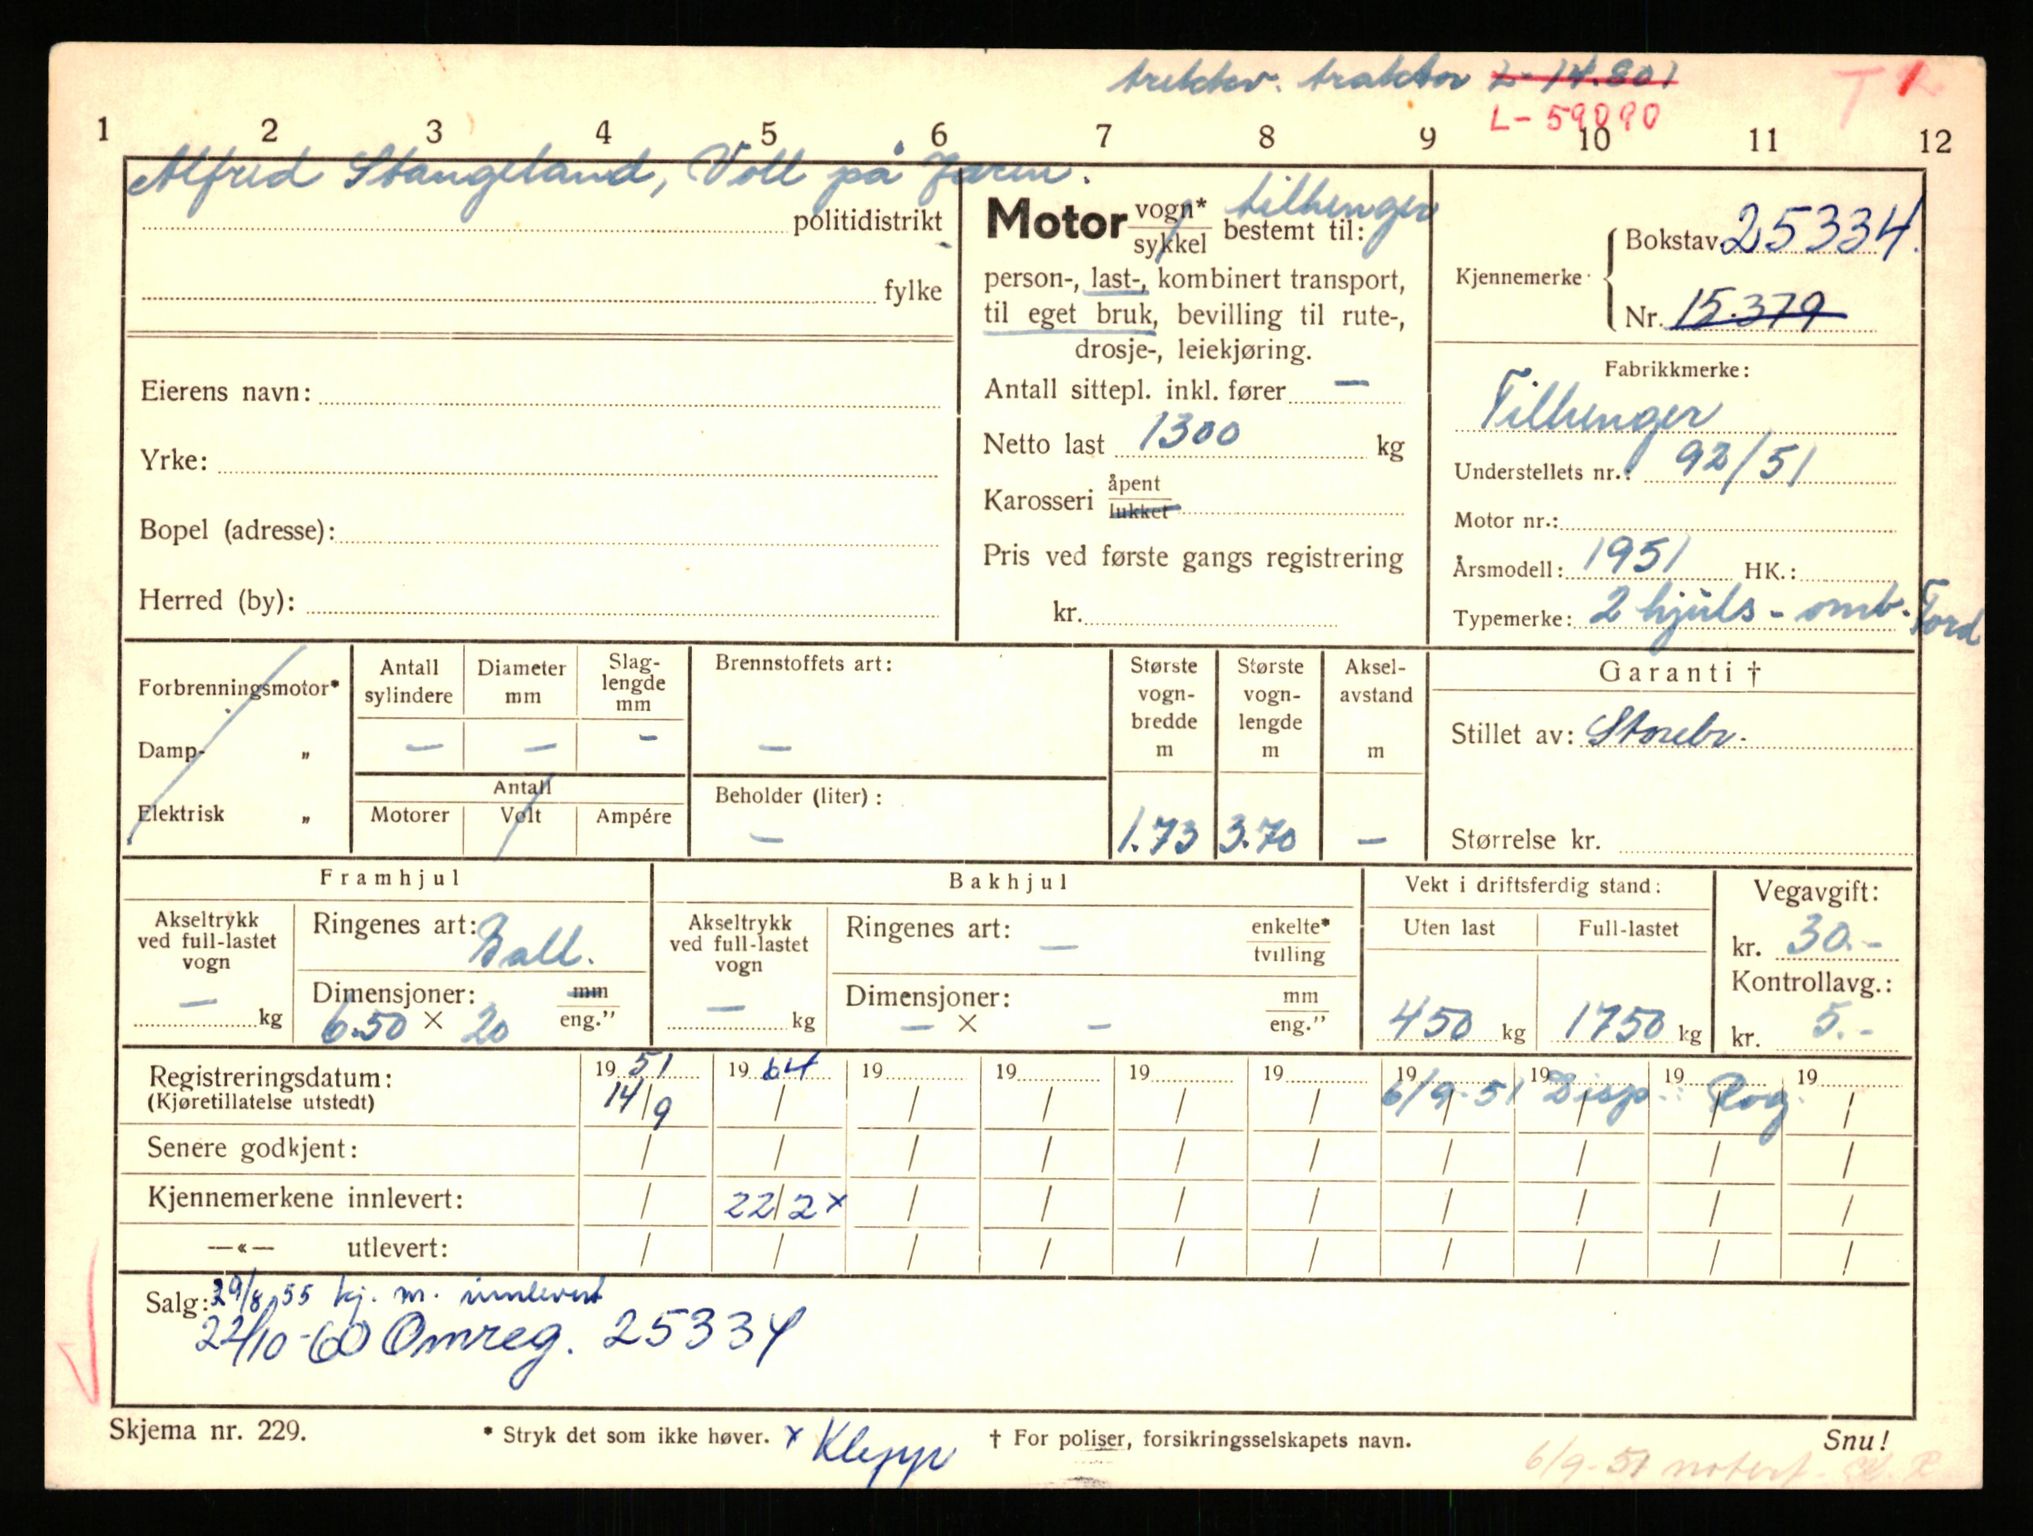 trekkv. traktor L-14.801
L-59090
T
1 2 3 4 5 6 7 8 9 10 11 12
Alfred Stangeland, Voll på Jæren.
politidistrikt
fylke
Eierens navn:
Yrke:
Bopel (adresse):
Herred (by):
Motor vogn* / sykkel bestemt til: tilhenger
person-, last-, kombinert transport,
til eget bruk, bevilling til rute-,
drosje-, leiekjøring.
Antall sittepl. inkl. fører —
Netto last 1300 kg
Karosseri åpent / lukket
Pris ved første gangs registrering
kr.
Kjennemerke
Bokstav 25334.
Nr. 15.379
Fabrikkmerke:
Tilhenger
Understellets nr.: 92/51
Motor nr.:
Årsmodell: 1951 HK.:
Typemerke: 2 hjuls - omb. Ford
Forbrenningsmotor*
Damp- „
Elektrisk „
Antall sylindere —
Diameter mm —
Slag-lengde mm —
Antall
Motorer Volt Ampére
Brennstoffets art: —
Beholder (liter): —
Største vogn-bredde m 1.73
Største vogn-lengde m 3.70
Aksel-avstand m —
Garanti †
Stillet av: Storebr.
Størrelse kr.
Framhjul
Akseltrykk ved full-lastet vogn — kg
Ringenes art: Ball.
Dimensjoner: mm / eng."
6.50 × 20
Bakhjul
Akseltrykk ved full-lastet vogn — kg
Ringenes art: — enkelte* / tvilling
Dimensjoner: mm / eng."
— × —
Vekt i driftsferdig stand:
Uten last Full-lastet
450 kg 1750 kg
Vegavgift:
kr. 30.-
Kontrollavg.:
kr. 5.-
Registreringsdatum: 19 51 19 64 19 19 19 19 19 19 19 19
(Kjøretillatelse utstedt) 14/9 6/9-51 Disp. Rog.
Senere godkjent:
Kjennemerkene innlevert: 22/2 x
—«— utlevert:
Salg: 29/8 55 kj. m. innlevert
22/10-60 Omreg. 25334
Skjema nr. 229. * Stryk det som ikke høver. x Klepp † For poliser, forsikringsselskapets navn. Snu!
6/9-51 notert